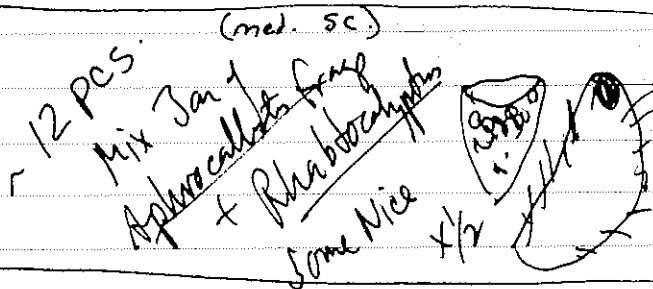 (med. sc.)
12 pcs.
Mix Jar of
Aphrocallistes frags
+ Rhabdocalyptus
Some Nice
x 1/2